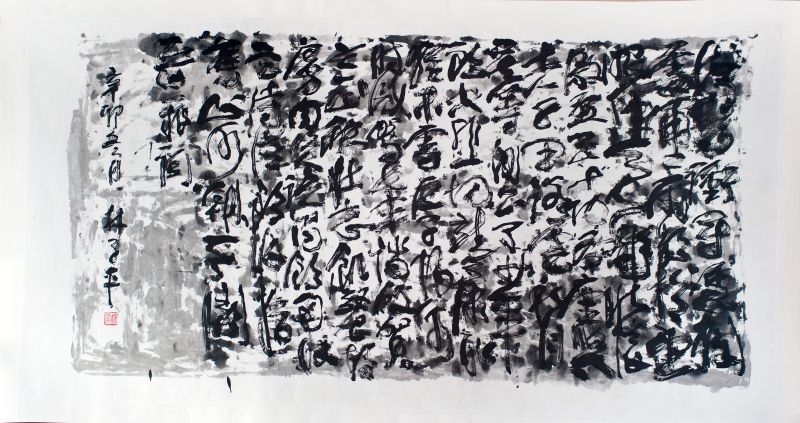 怒髮衝冠憑欄
處瀟瀟雨歇抬
望眼仰天長嘯壯懷
激烈三十功名塵與
土八千里路雲和月
莫等閒白了少年
頭空悲切靖康恥
猶未雪臣子恨何
時滅駕長車踏破賀
蘭山缺壯志飢餐胡
虜肉笑談渴飲匈奴
血待從頭收拾
舊山河朝天闕
辛卯五月林子平